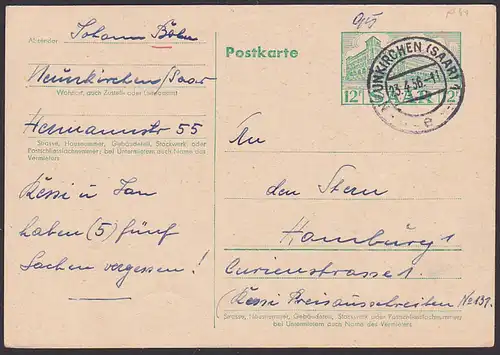 Absender: Johann Bohn
Neunkirchen/Saar
Wohnort, auch Zustell- oder Leitpostamt
Hermannstr 55
Strasse, Hausnummer, Gebäudeteil, Stockwerk oder
Postschliessfachnummer; bei Untermietern auch Name des
Vermieters
Kessi u Jan
haben (5) fünf
Sachen vergessen!
Postkarte
NEUNKIRCHEN (SAAR) 1
23.4.56.-11
e
12F SAAR 12F
An
den Stern
Hamburg 1
Curienstrasse 1.
(Kessi Preisausschreiben No 131.
Strasse, Hausnummer, Gebäudeteil, Stockwerk oder Postschliessfachnummer
bei Untermietern auch Name des Vermieters